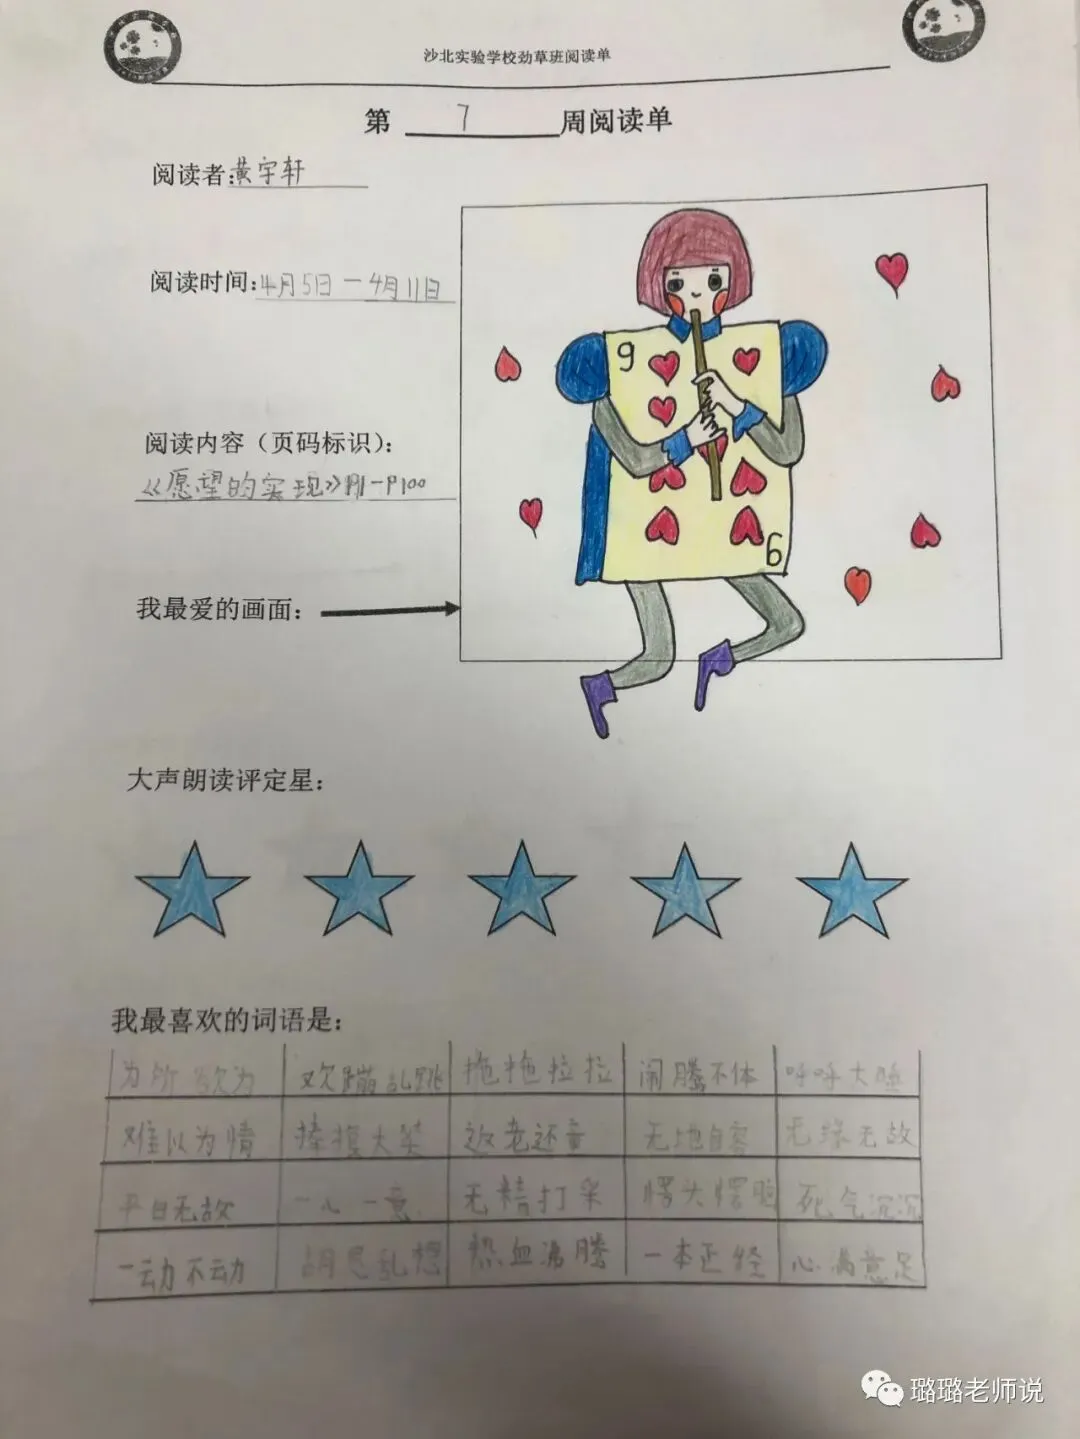 沙北实验学校劲草班阅读单
第 7 周阅读单
阅读者:黄宇轩
阅读时间:4月5日一4月11日
阅读内容（页码标识）:
《愿望的实现》P1-P100
9
6
我最爱的画面:
大声朗读评定星:
我最喜欢的词语是:
为所欲为 欢蹦乱跳 拖拖拉拉 闹腾不休 呼呼大睡
难以为情 捧腹大笑 返老还童 无地自容 无缘无故
平白无故 一心一意 无精打采 愣头愣脑 死气沉沉
一动不动 胡思乱想 热血沸腾 一本正经 心满意足
璐璐老师说